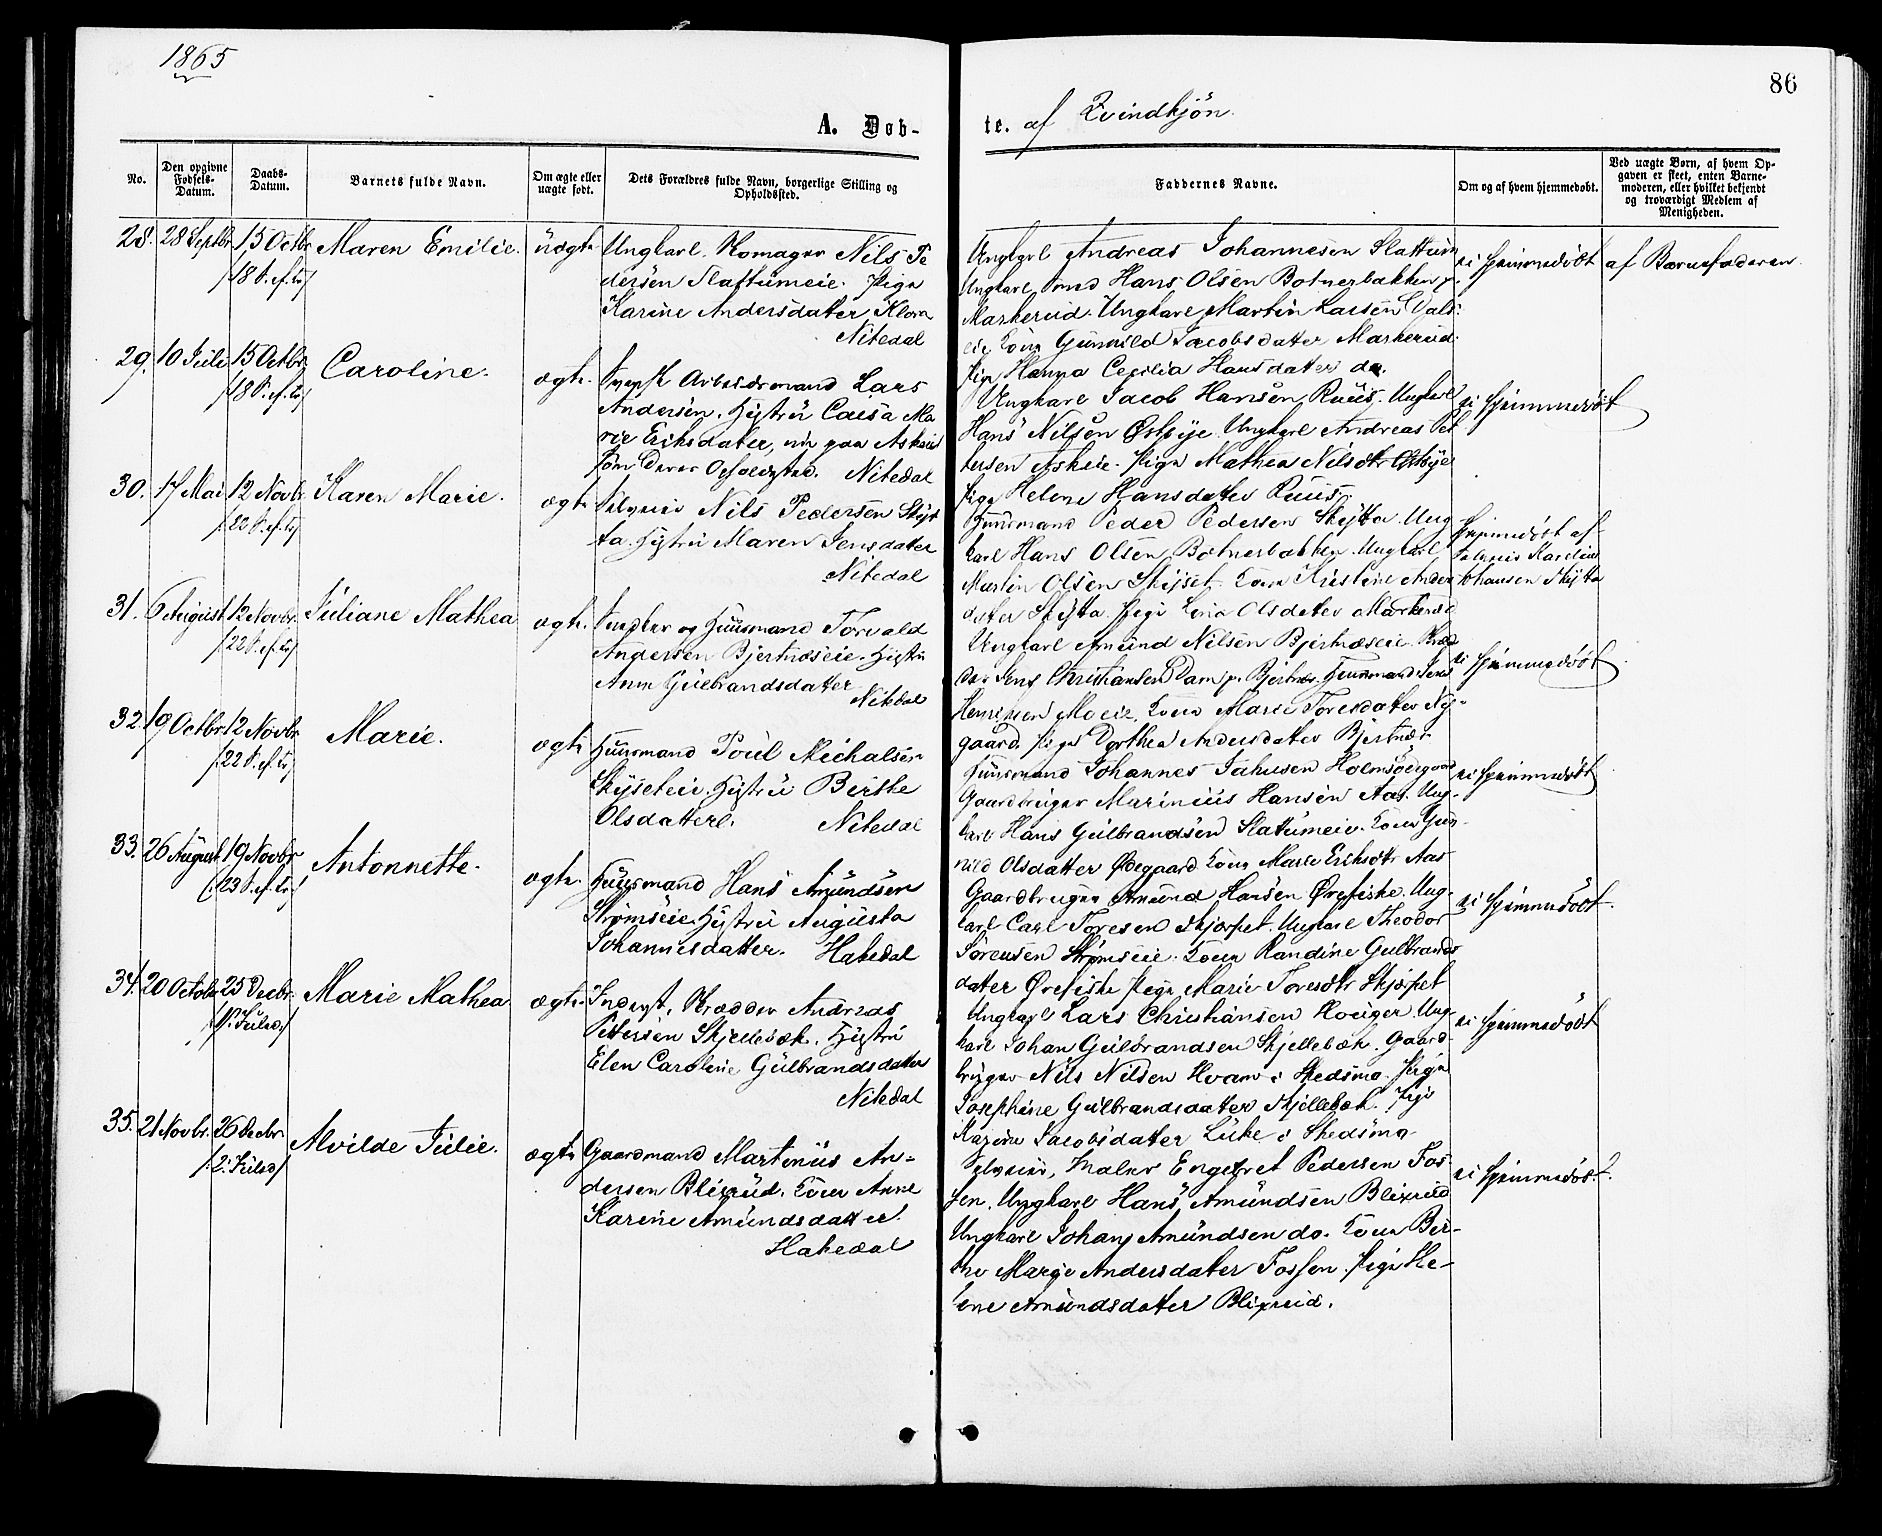 1865
86
A. Døb-
te. af Qvindkjön.
No.
Den opgivne
Fødsels-
Datum.
Daabs-
Datum.
Barnets fulde Navn.
Om ægte eller
uægte født.
Dets Forældres fulde Navn, borgerlige Stilling og
Opholdssted.
Faddernes Navne.
Om og af hvem hjemmedøbt.
Ved uægte Børn, af hvem Op-
gaven er skeet, enten Barne-
moderen, eller hvilket bekjendt
og troværdigt Medlem af
Menigheden.
28. 28 Septbr 15 Octbr Maren Emilie. uægte
/18 S. ef. Tr/
Ungkarl, Nils Pe
dersen Slattumeie. Pige
Karine Andersdatter
Nitedal
Ungkarl Andreas Johannesen Slattum
Ungkarl Hans Olsen Botnerbakken
Markerud. Ungkarl Martin Larsen
Kone Gunnild Jacobsdatter Markerud.
Pige Hanna Cecilia Hansdatter do.
ei hjemmedöbt
af Barnefaderen.
29. 10 Juli 15 Octbr Caroline. ægte.
/18 S. ef. Tr/
Svensk Arbeidsmand Lars
Andersen. Hustru Caisa Ma
rie Eriksdatter, nu paa Askeie
som deres Opholdssted. Nitedal
Ungkarl Jacob Hansen Ruus. Ungkarl
Hans Nilsen Østbye. Ungkarl Andreas Pet
tersen Askeie. Pige Mathea Nilsdtr Østbye
Pige Helene Hansdatter Ruus
ei hjemmedöbt
30. 17 Mai 12 Novbr Karen Marie. ægte
/22 S. ef. Tr/
Selveier Nils Pedersen Skyt
ta. Hustru Maren Jensdatter
Nitedal
Huusmand Peder Pedersen Skytta. Ung
karl Hans Olsen Botnerbakken. Ungkarl
Martin Olsen Skyset. Kone Kristine Anders
datter Skytta. Pige Olsdatter Markerud
Hjemmedöbt af
Selveier
Johansen Skytta
31. 6 August 12 Novbr. Juliane Mathea ægte.
/22 S. ef. Tr/
og Huusmand Torvald
Andersen Bjertnæseie. Hustru
Anne Gulbrandsdatter
Nitedal
Ungkarl Amund Nilsen Bjertnæseie.
Jens Christiansen Dam p. Bjertnæs. Huusmand Jens
Henriksen Moeie. Kone Marie Toresdatter Ny-
gaard. Pige Dorthea Andersdatter Bjertnæs
ei hjemmedöbt
32. 19 Octbr 12 Novbr Marie. ægte
/22 S. ef. Tr/
Huusmand Poul Michalsen
Skyseteie. Hustru Birthe
Olsdatter. Nitedal
Huusmand Johannes Holmsødegaard
Gaardbruger Marinius Hansen Aas. Ung-
karl Hans Gulbrandsen Slattumeie. Kone Gun
nild Olsdatter Ødegaard Kone Marie Eriksdtr Aas
ei hjemmedöbt
33. 26 August 19 Novbr Antonnette. ægte.
/23 S. ef. Tr/
Huusmand Hans Amundsen
Strømseie. Hustru Augusta
Johannesdatter. Hakedal
Gaardbruger Amund Hansen Ørefiske. Ung-
karl Carl Toresen Skjerpet. Ungkarl Theodor
Sörensen Strømseie. Kone Randine Gulbrands
datter Ørefiske Pige Marie Toresdtr Skjerpet
ei hjemmedöbt.
34. 20 Octobr 25 Decbr. Marie Mathea ægte
/1ste Juled/
Inderst, Andreas
Pettersen Skjellebæk. Hustru
Elen Caroline Gulbrandsdatter
Nitedal
Ungkarl Lars Christiansen Ung-
karl Johan Gulbrandsen Skjellebæk. Gaard-
bruger Nils Nilsen Hvam i Skedsmo. Pige
Josephine Gulbrandsdatter Skjellebæk. Pige
Karine Jacobsdatter i Skedsmo
ei hjemmedöbt
35. 21 Novbr. 26 Decbr Alvilde Julie. ægte
/2. Juled/
Gaardmand Martinius An-
dersen Blixrud. Kone Anne
Karine Amundsdatter.
Hakedal
Selveier, Maler Engebret Pedersen Fos-
sen. Ungkarl Hans Amundsen Blixrud
Ungkarl Johan Amundsen do. Kone Ber-
the Marie Andersdatter Fossen. Pige He-
lene Amundsdatter Blixrud.
ei hjemmedöbt.